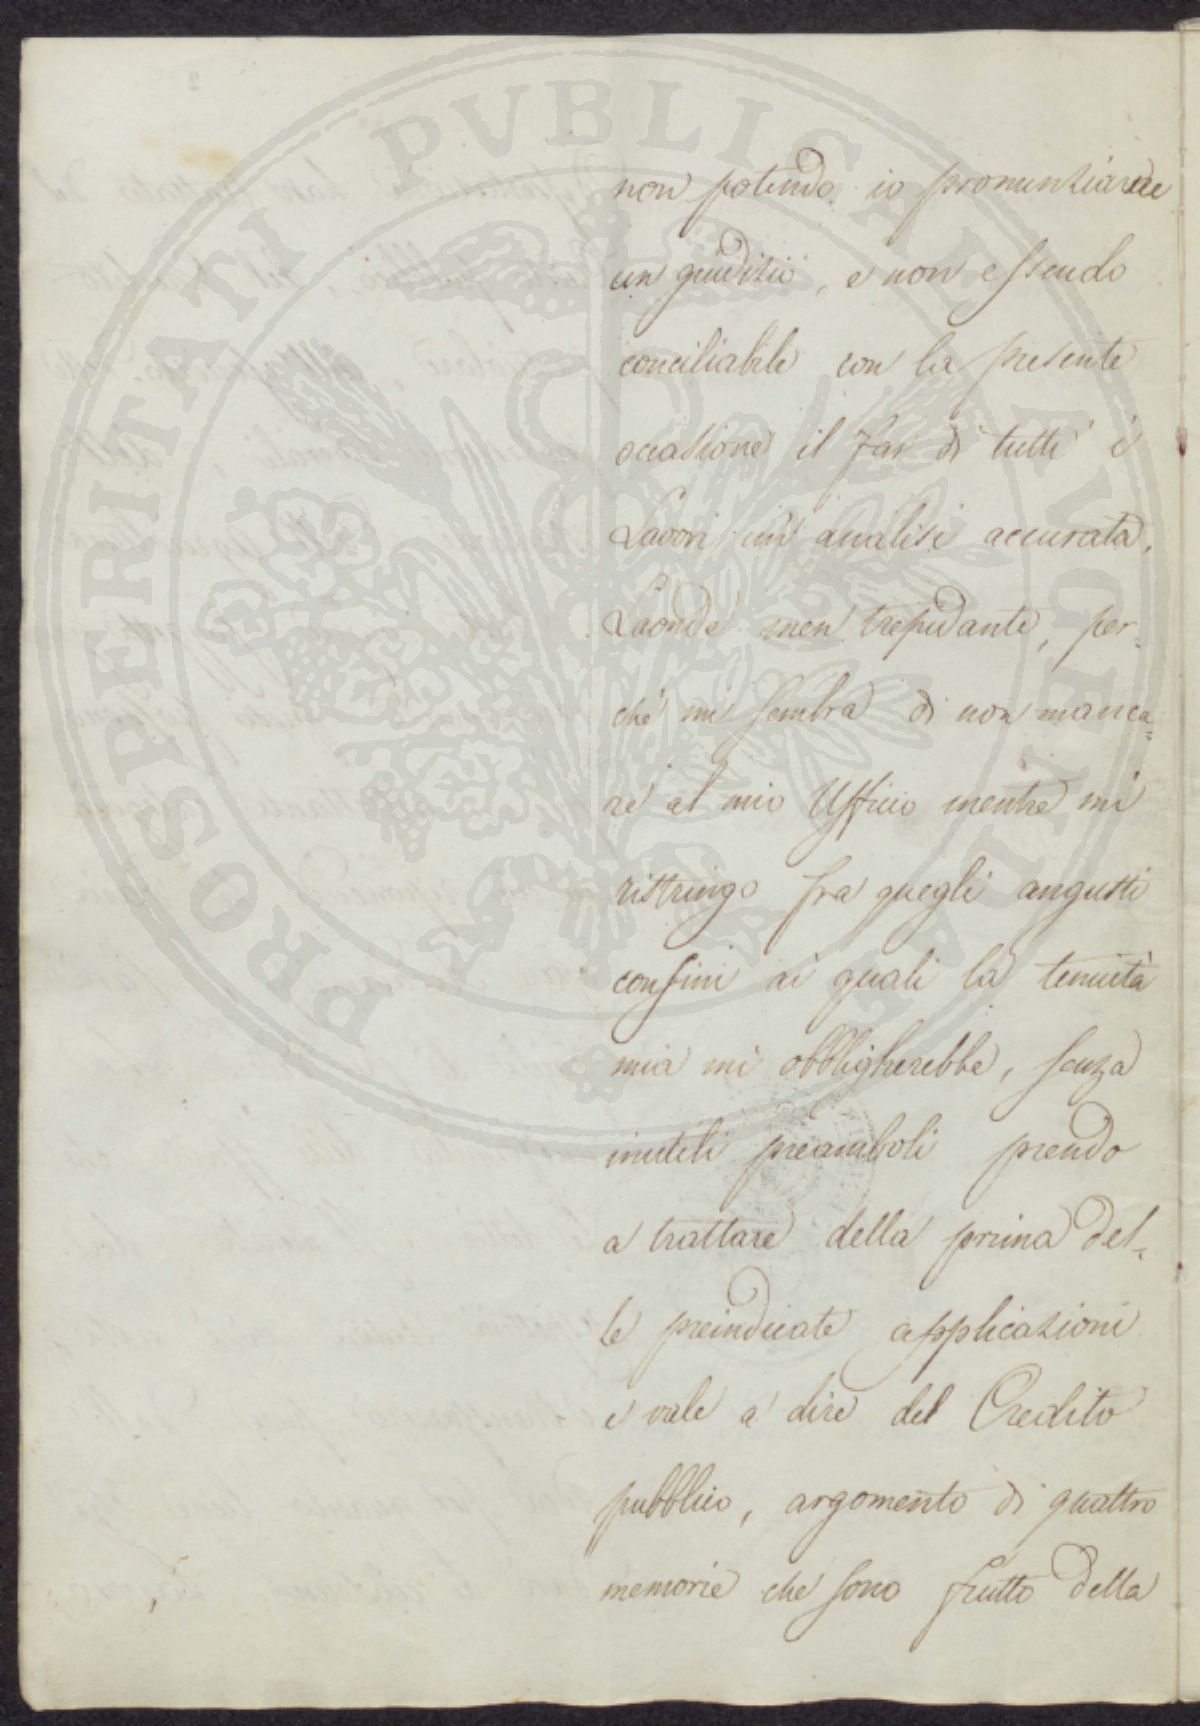 PROSPERITATI PVBLICAE AVGENDAE
non potendo io pronunziare
un giudizio, e non essendo
conciliabile con la presente
occasione il far di tutti i
Lavori un' analisi accurata.
Laonde men trepidante, per-
ché mi sembra di non manca=
re al mio Ufficio mentre mi
ristringo fra quegli angusti
confini ai quali la tenuità
mia mi obbligherebbe, senza
inutili preamboli prendo
a trattare della prima del=
le preindicate applicazioni
e vale a dire del Credito
pubblico, argomento di quattro
memorie che sono frutto della